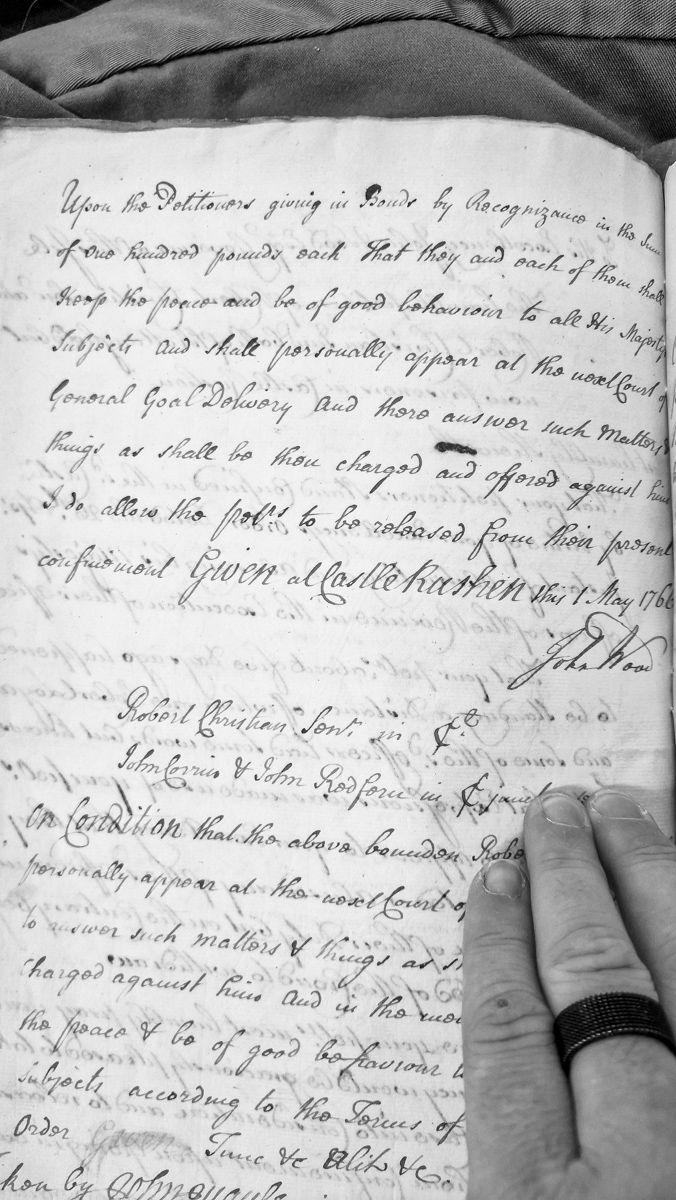 Upon the Petitioners giving in Bonds by Recognizance in the Sum
of one hundred pounds each That they and each of them shall
Keep the peace and be of good behaviour to all His Majesty's
Subjects and shall personally appear at the next Court of
General Goal Delivery and there answer such Matters &
things as shall be then charged and offered against him
I do allow the petrs to be released from their present
confinement Given at Castle Rushen this 1 May 1766
John Wood
Robert Christian Senr in
John Corrin & John Redfern in
On Condition that the above bounden Robe
personally appear at the next Court of
to answer such matters & things as s
charged against him and in the mea
the peace & be of good behaviour to
subjects according to the Terms of
Order Given
ken by John